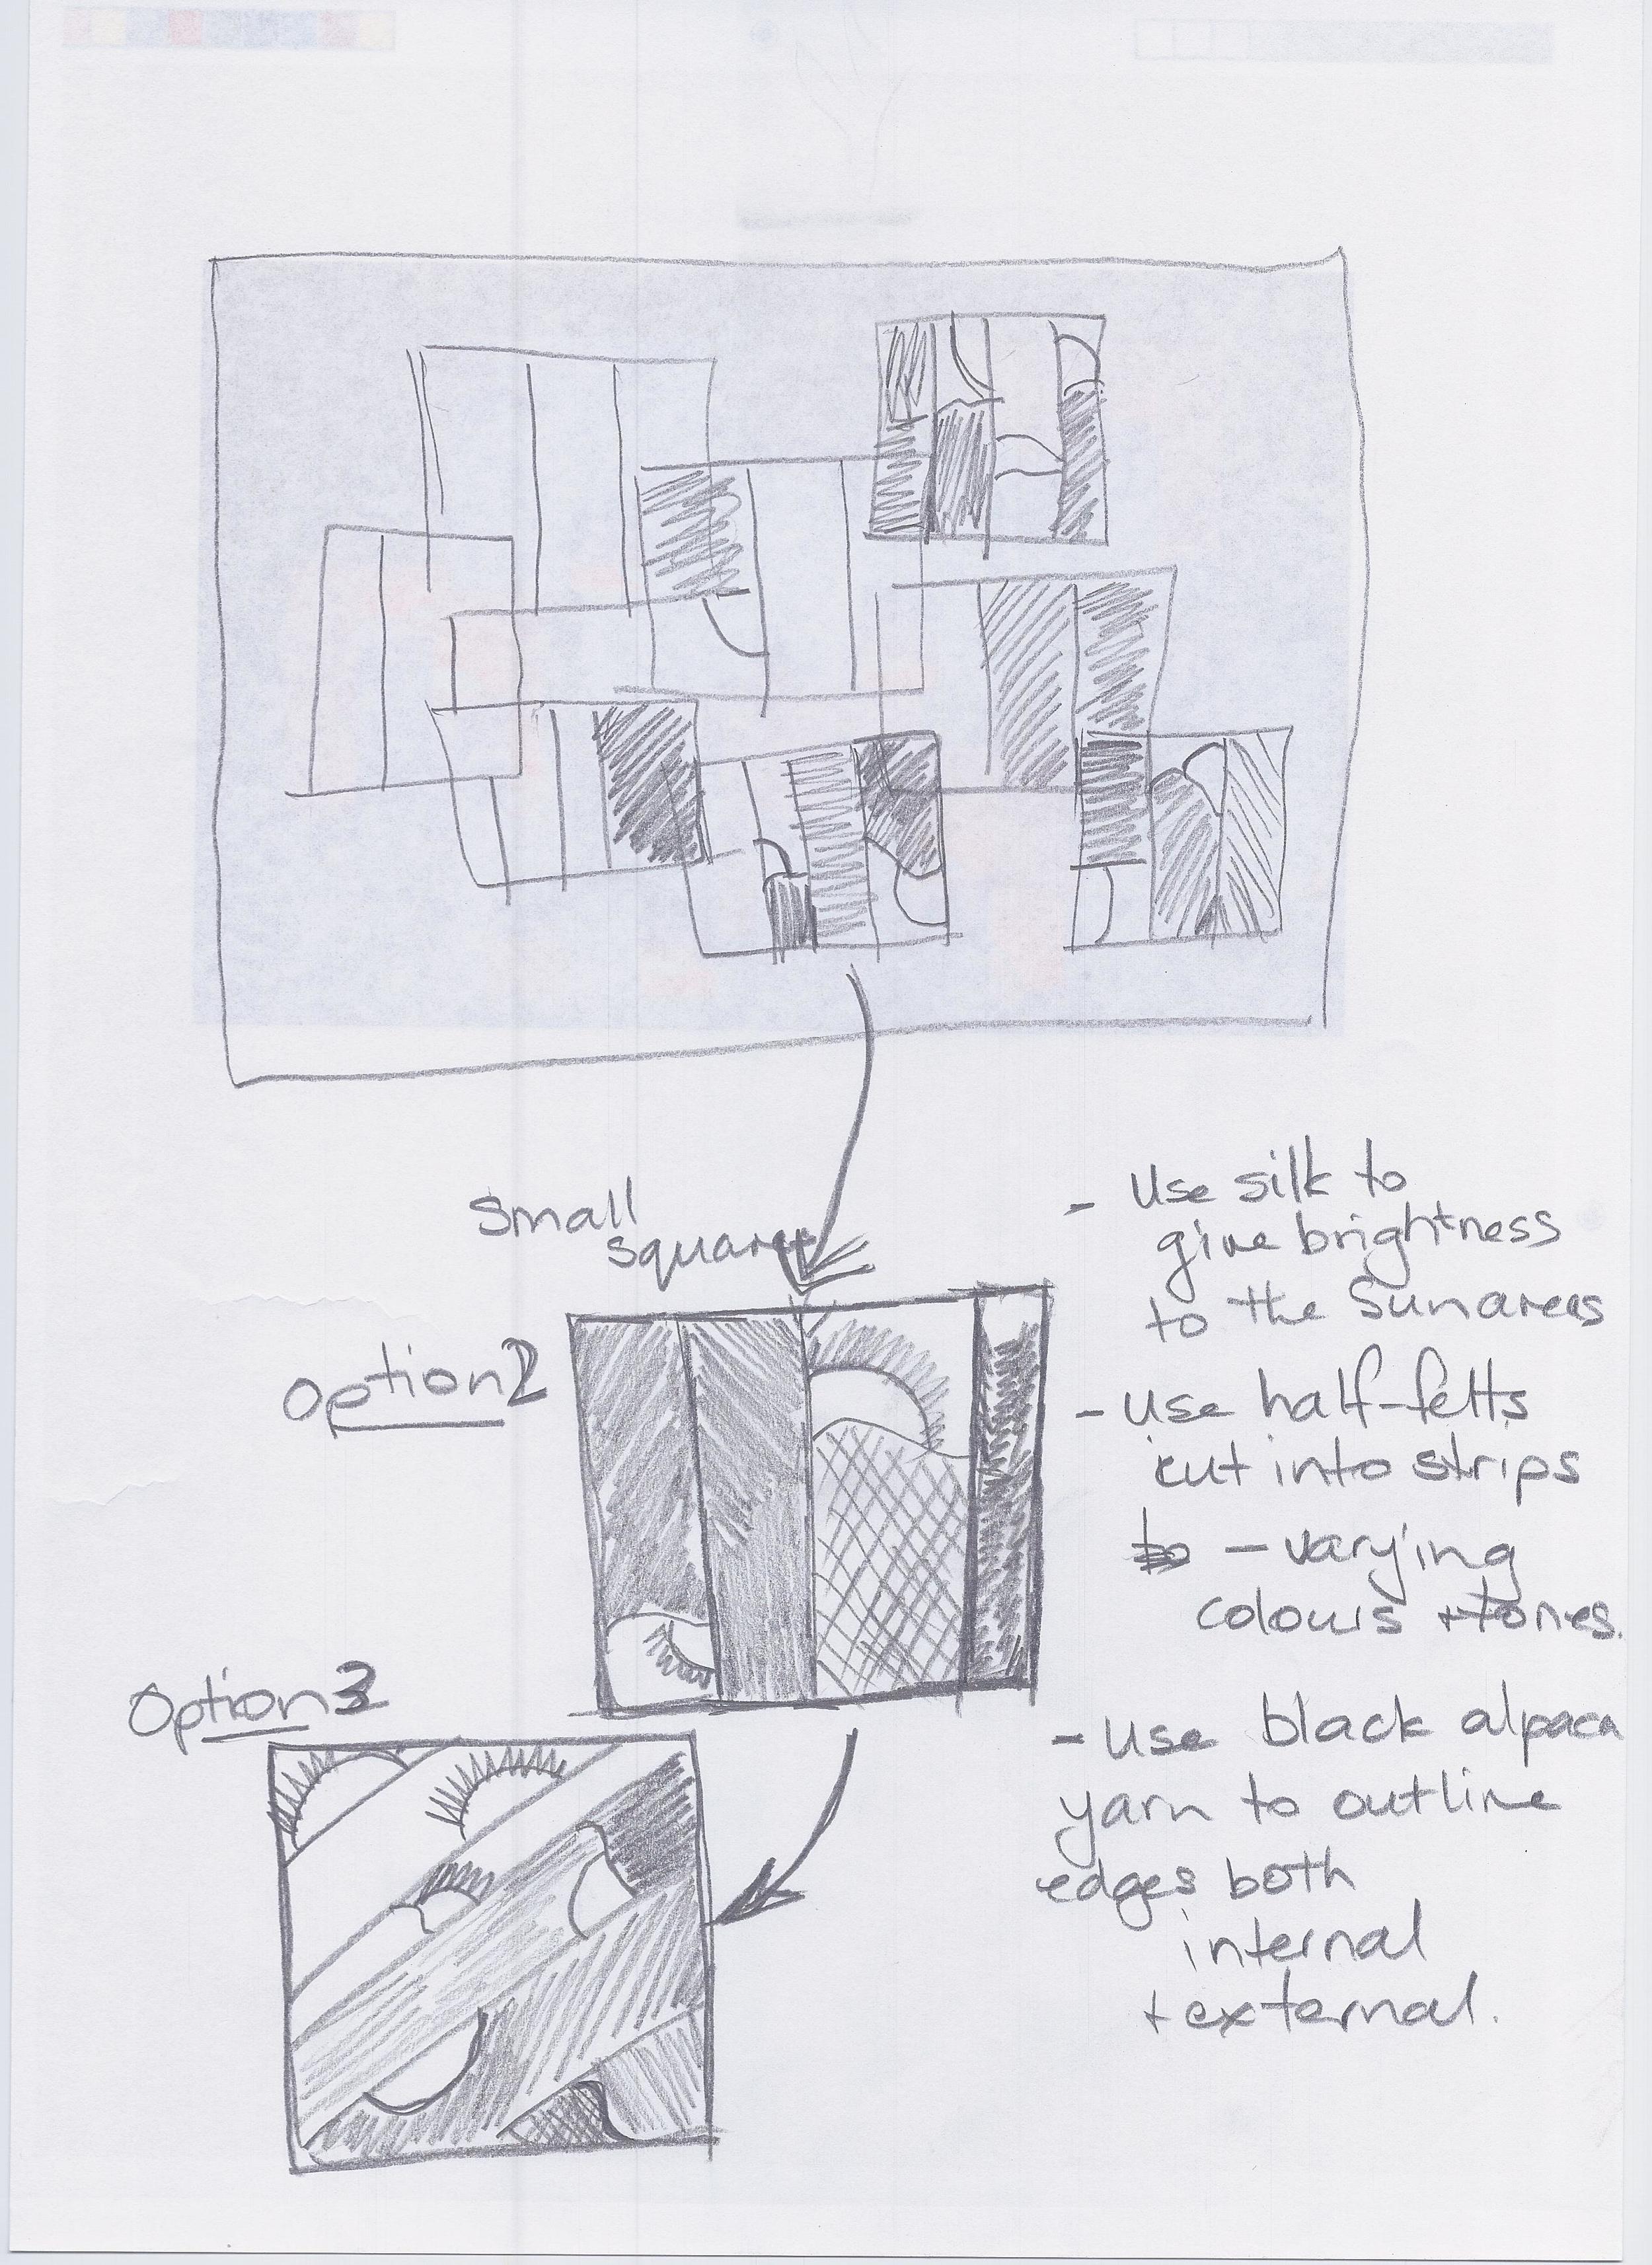 Small
squares
- Use silk to
give brightness
to the Sun areas
Option 2
- Use half-felts
cut into strips
to - varying
colours + tones.
Option 3
- Use black alpaca
yarn to outline
edges both
internal
+ external.